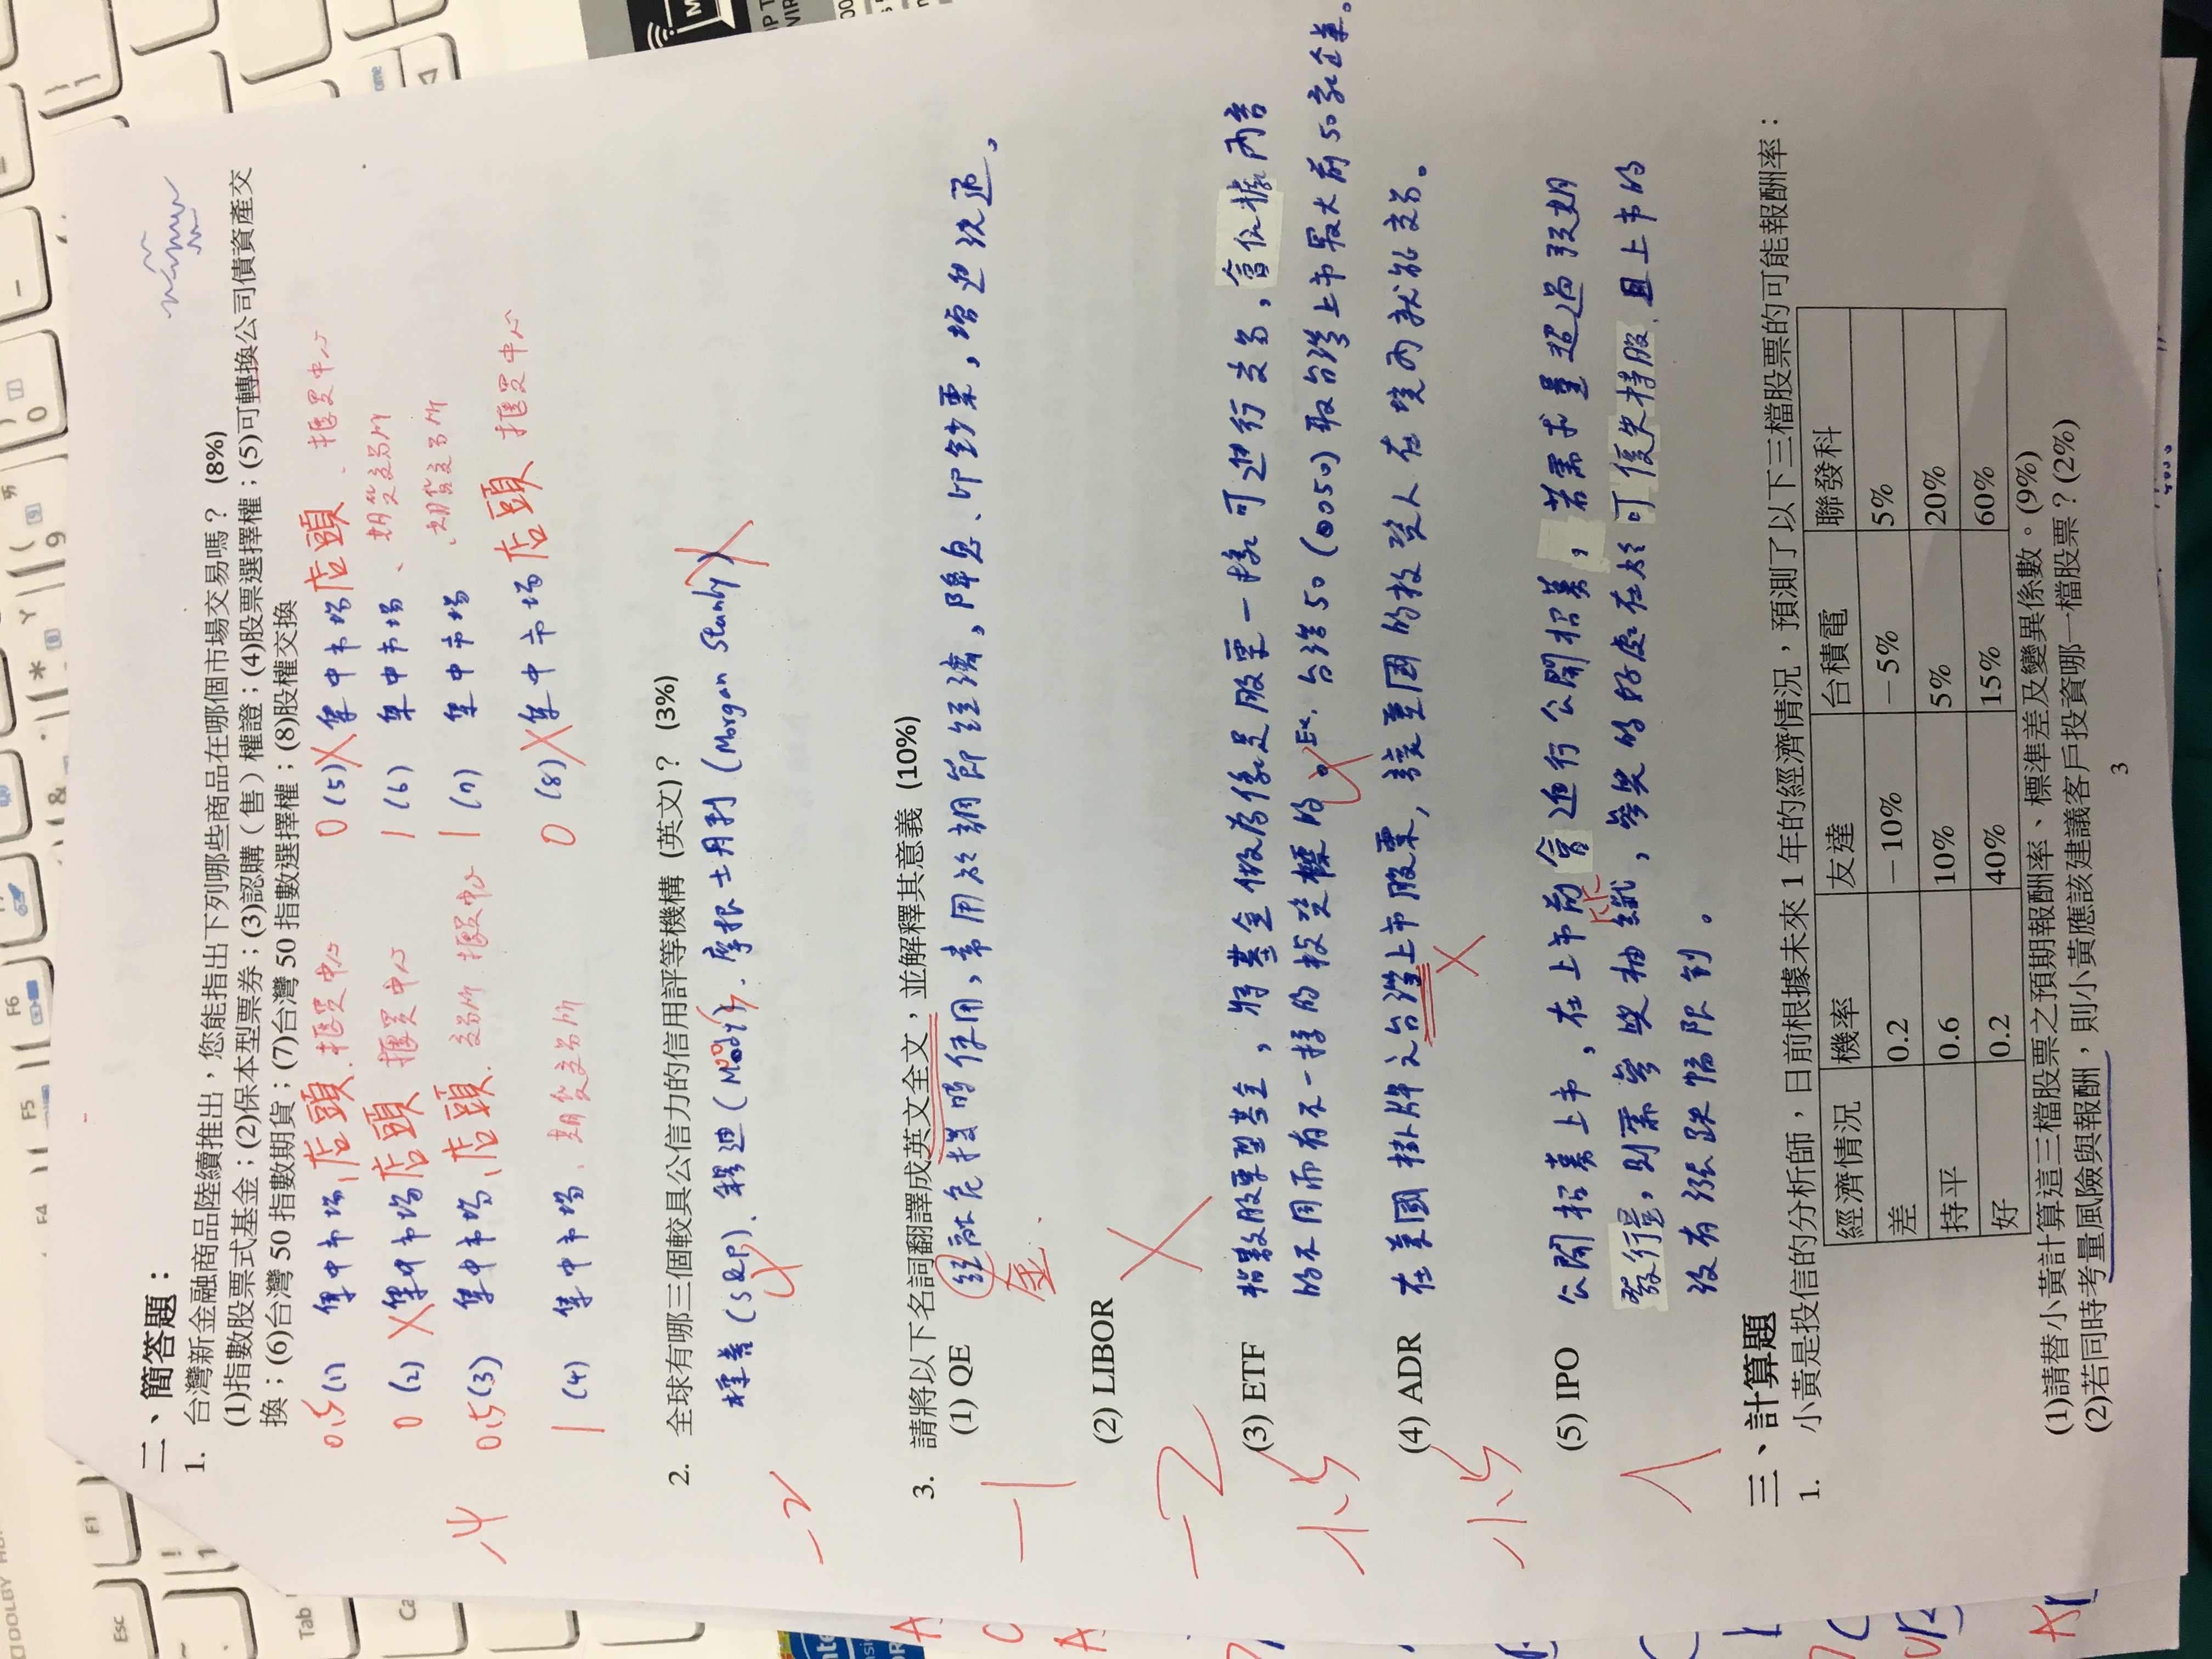 二、簡答題：
1. 台灣新金融商品陸續推出，您能指出下列哪些商品在哪個市場交易嗎？ (8%)
(1)指數股票式基金；(2)保本型票券；(3)認購（售）權證；(4)股票選擇權；(5)可轉換公司債資產交
換；(6)台灣 50 指數期貨；(7)台灣 50 指數選擇權；(8)股權交換
0.5 (1) 集中市場、店頭. 櫃買中心
0 (5) X 集中市場 店頭、櫃買中心
0 (2) X 集中市場 店頭 櫃買中心
1 (6) 集中市場、期貨交易所
-4
0.5 (3) 集中市場、店頭. 交易所 櫃買中心
1 (7) 集中市場、期貨交易所
1 (4) 集中市場、期貨交易所
0 (8) X 集中市場 店頭 櫃買中心
2. 全球有哪三個較具公信力的信用評等機構 (英文)？ (3%)
標普 (S&P)、穆迪 (Moody's)、摩根士丹利 (Morgan Stanly) X
-2
3. 請將以下名詞翻譯成英文全文，並解釋其意義 (10%)
(1) QE 經融危機時使用，常用於調節經濟，降息、印鈔票，增進流通，
金.
-1
(2) LIBOR
X
-2
(3) ETF 指數股票型基金，將基金做為像是股票一樣可進行交易，會依據內容
的不同而有不一樣的投資標的。Ex. 台灣50 (0050) 取台灣上市最大前50家企業。
-1.5
(4) ADR 在美國掛牌之台灣上市股票，讓美國的投資人在境內就能交易。
X
-1.5
(5) IPO 公開招募上市，在上市前會進行公開招募，若需求量超過預期
發行量，則需參與抽籤，參與的好處在於可優先持股，且上市的
沒有漲跌幅限制。
三、計算題
1. 小黃是投信的分析師，日前根據未來 1 年的經濟情況，預測了以下三檔股票的可能報酬率：
經濟情況 機率 友達 台積電 聯發科
差 0.2 －10% －5% 5%
持平 0.6 10% 5% 20%
好 0.2 40% 15% 60%
(1)請替小黃計算這三檔股票之預期報酬率、標準差及變異係數。(9%)
(2)若同時考量風險與報酬，則小黃應該建議客戶投資哪一檔股票？(2%)
3
DOLBY
Esc
F1
F4
F5
F6
Tab